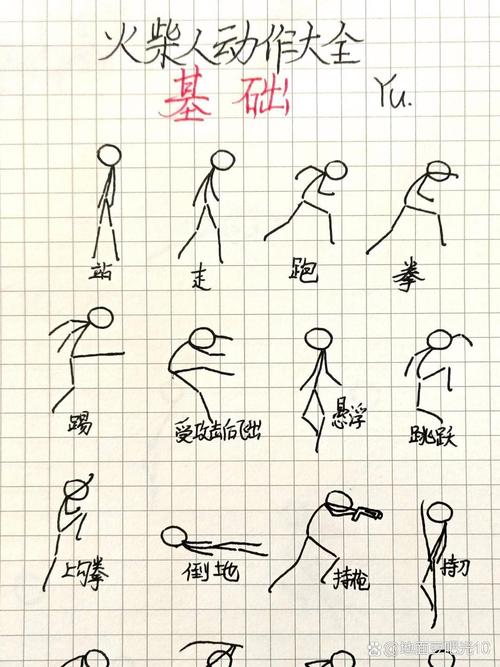 火柴人动作大全
基础 Yu.
站 走 跑 拳
踢 受攻击后飞出 悬浮 跳跃
上勾拳 倒地 持枪 持刀